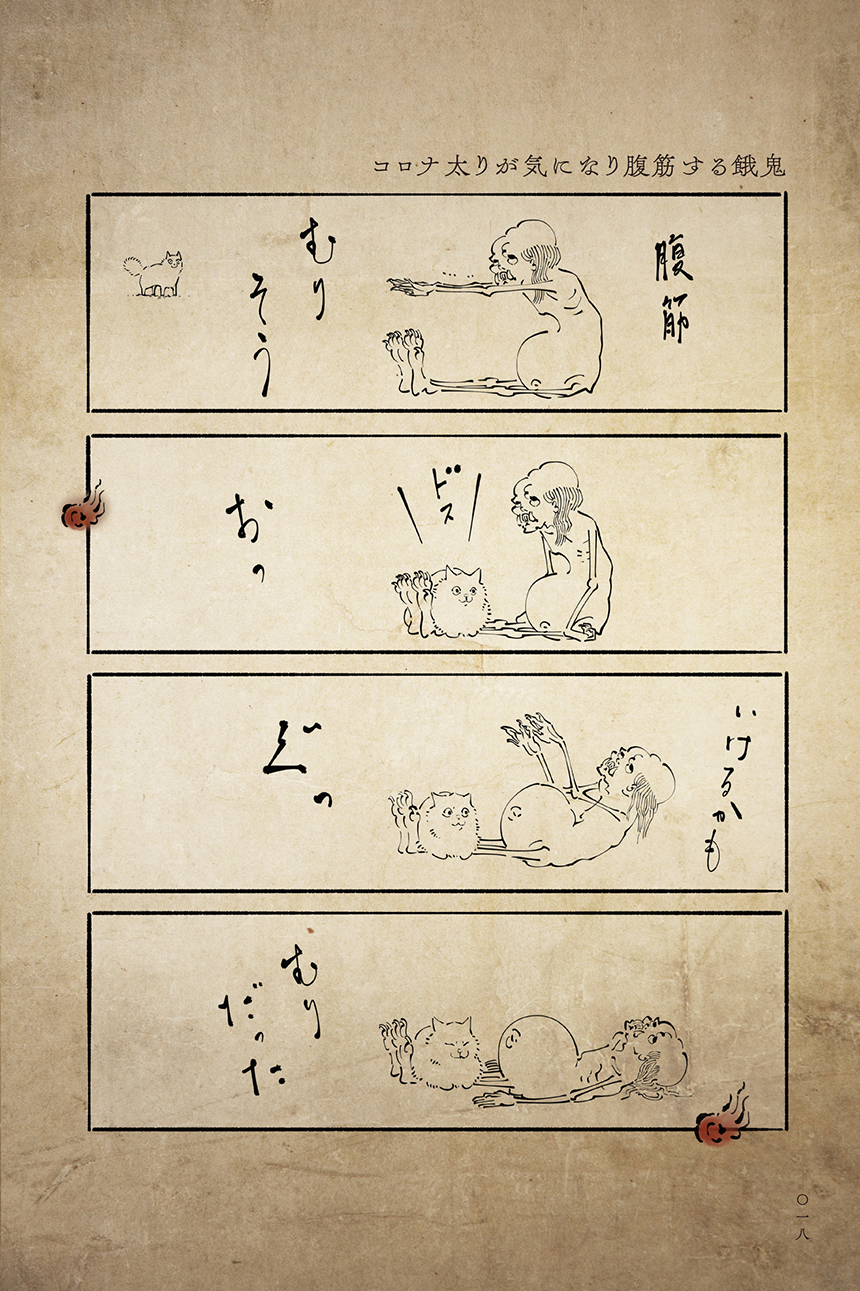 コロナ太りが気になり腹筋する餓鬼
腹筋
むり
そう
ドス
おっ
いけるかも
ぐっ
むり
だった
〇一八